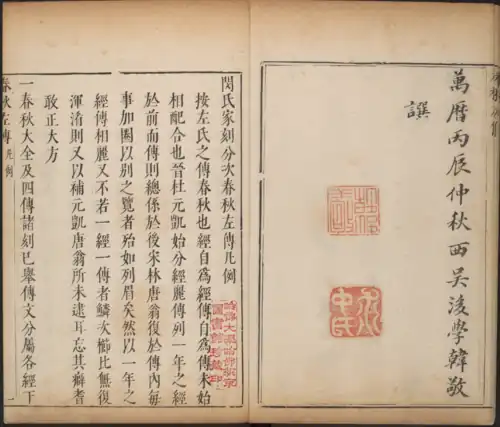 萬曆丙辰仲秋西吳後學韓敬
譔
閔氏家刻分次春秋左傳凡例
按左氏之傳春秋也經自爲經傳自爲傳未始
相配合也晉杜元凱始分經麗傳列一年之經
於前而傳則總係於後宋林唐翁復於傳內每
事加圈以別之覽者殆如列眉矣然以一年之
經傳相麗又不若一經一傳者鱗次櫛比無復
渾淆則又以補元凱唐翁所未逮耳忘其癖者
敢正大方
一春秋大全及四傳諸刻已舉傳文分屬各經下
春秋左傳 凡例 一
哈佛大學哈佛燕京
圖書館珍藏印